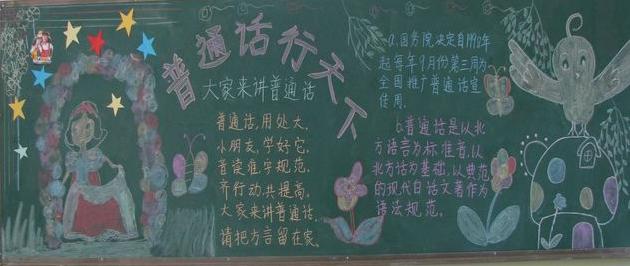 普通话行天下
大家来讲普通话
普通话,用处大,
小朋友,学好它,
音读准,字规范,
齐行动,共提高,
大家来讲普通话,
请把方言留在家。
a.国务院决定自1998年
起每年9月份第三周为
全国推广普通话宣
传周.
b.普通话是以北
京语音为标准音,以
北方话为基础,以典范
的现代白话文著作为
语法规范。